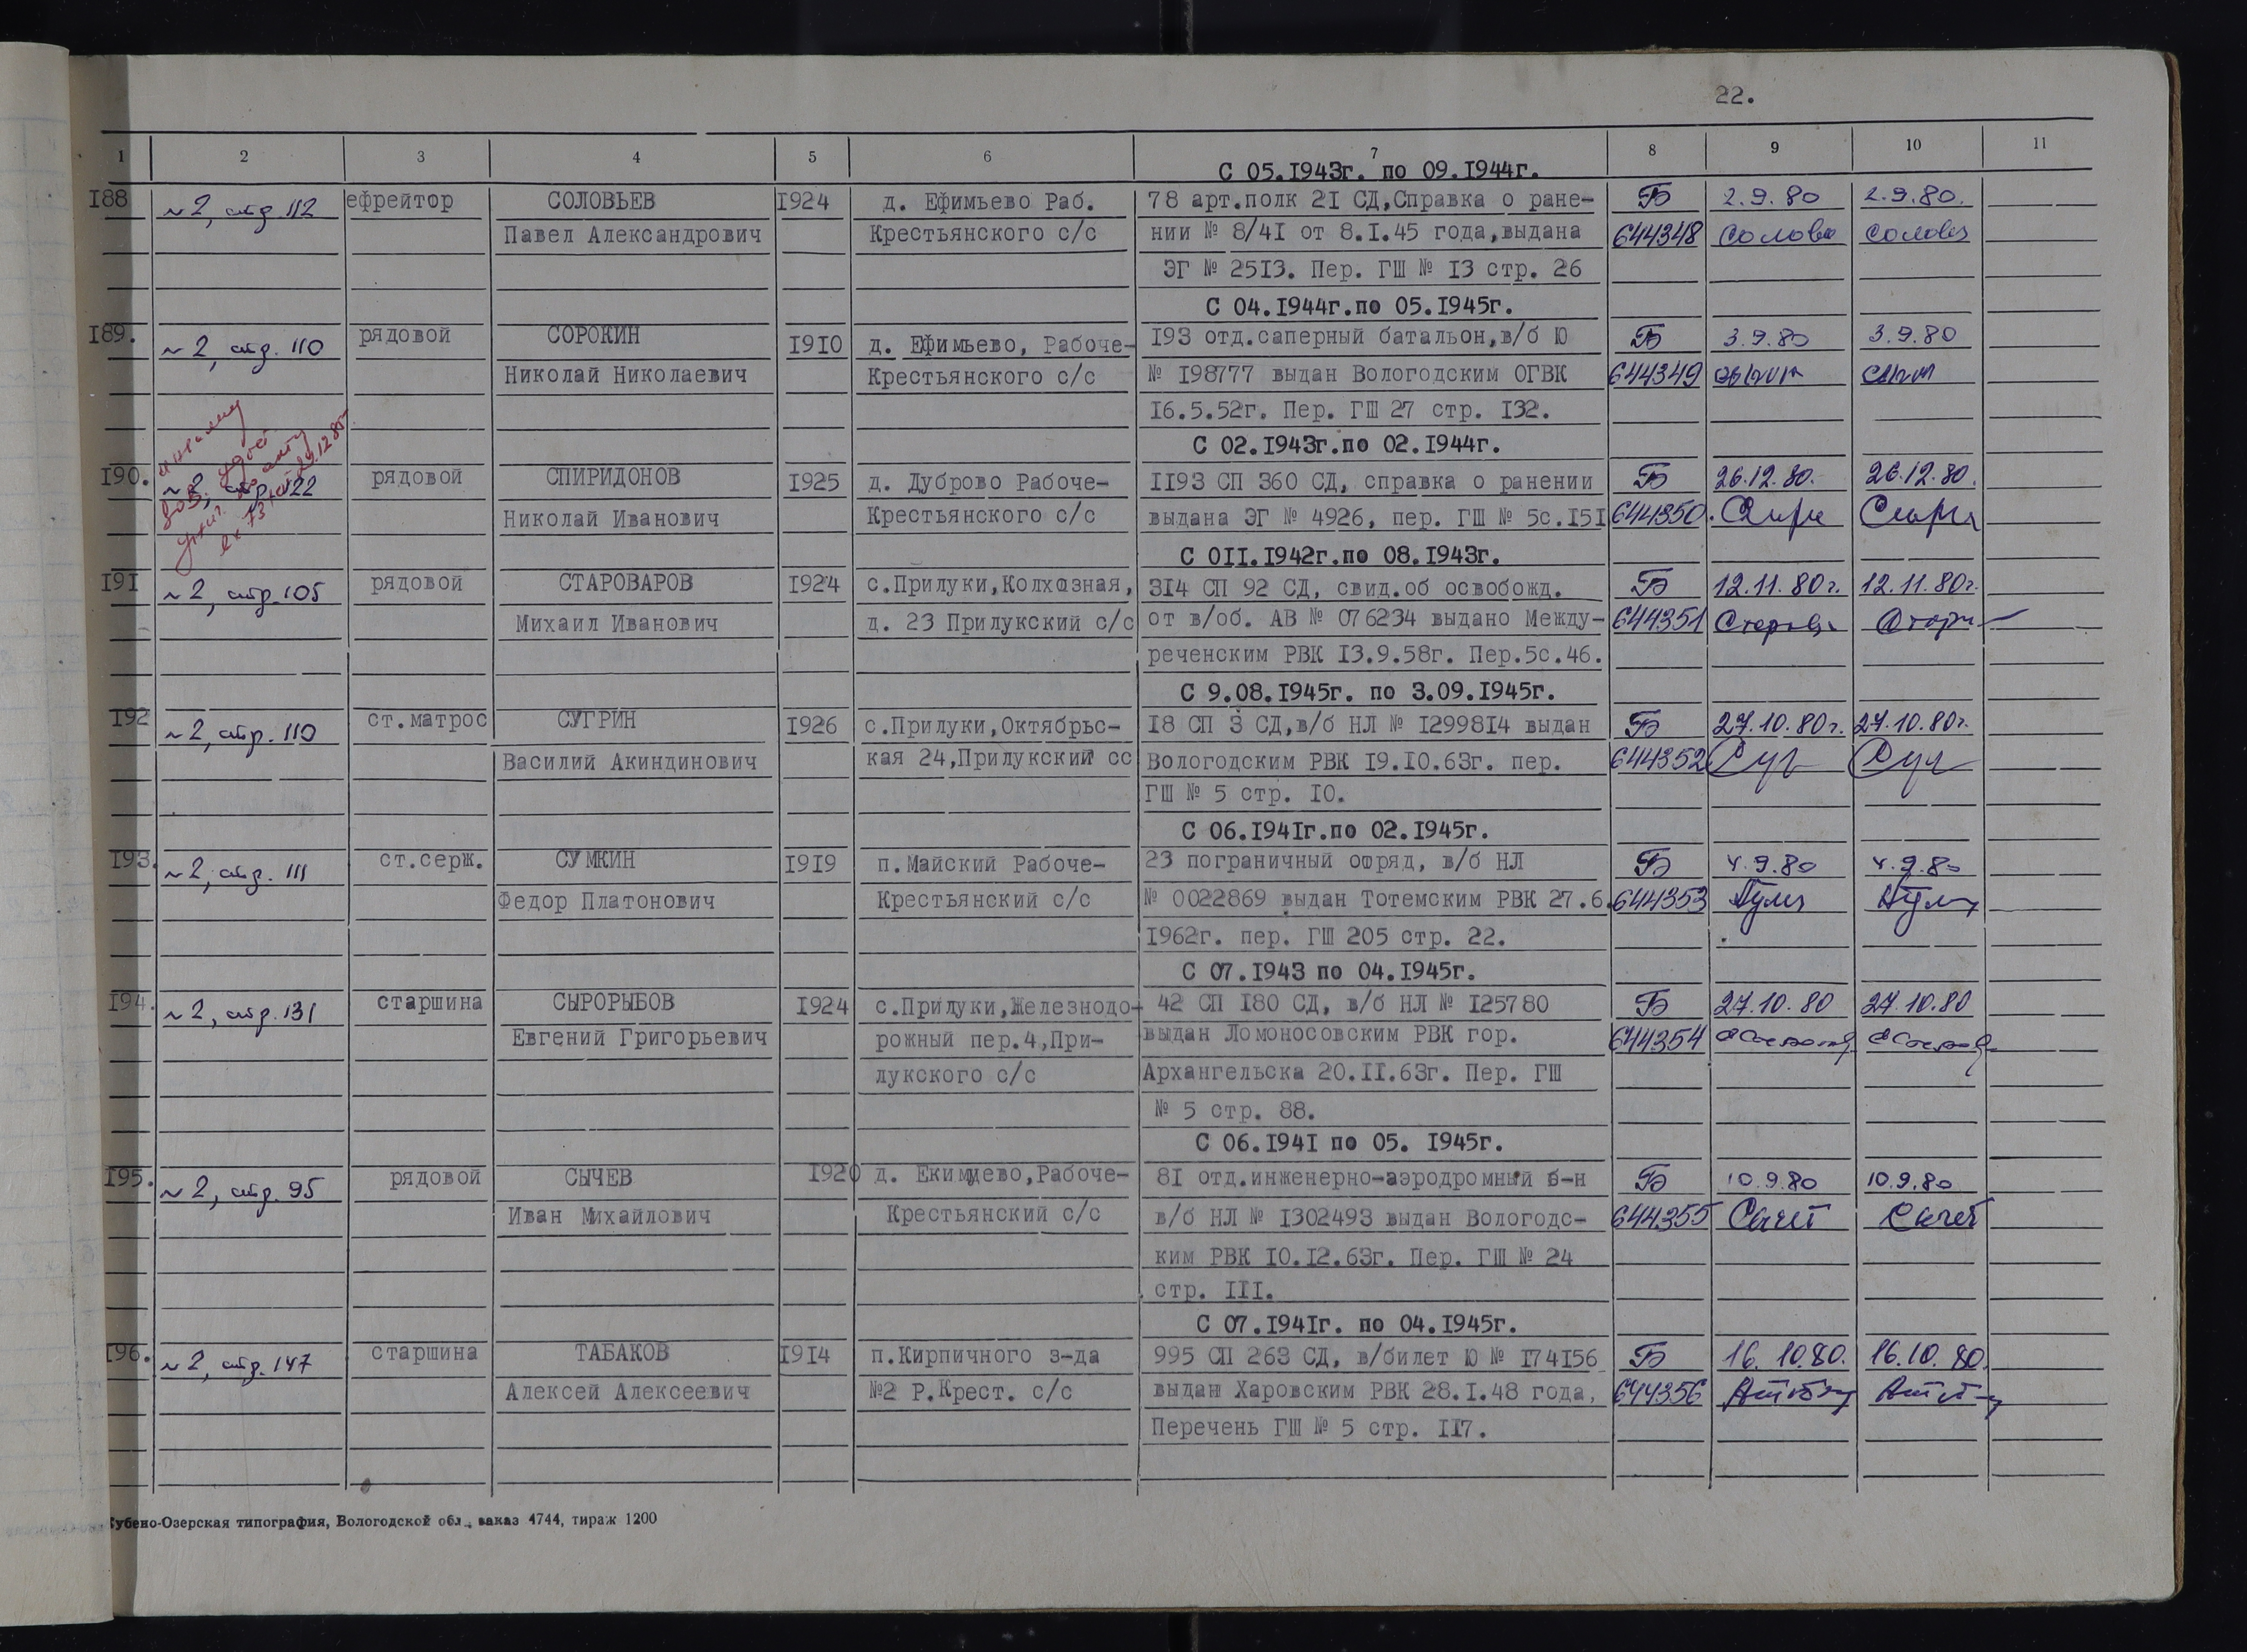 22.
1 2 3 4 5 6 7 8 9 10 11
С 05.1943г. по 09.1944г.
188 №2, стр. 112 ефрейтор СОЛОВЬЕВ 1924 д. Ефимьево Раб. 78 арт.полк 21 СД,Справка о ране- Б 2.9.80 2.9.80.
Павел Александрович Крестьянского с/с нии № 8/41 от 8.1.45 года,выдана 644348
ЭГ № 2513. Пер. ГШ № 13 стр. 26
С 04.1944г.по 05.1945г.
189. №2, стр. 110 рядовой СОРОКИН 1910 д. Ефимьево, Рабоче- 193 отд.саперный батальон,в/б Ю Б 3.9.80 3.9.80
Николай Николаевич Крестьянского с/с № 198777 выдан Вологодским ОГВК 644349
16.5.52г. Пер. ГШ 27 стр. 132.
С 02.1943г.по 02.1944г.
190. №2, стр. 122 рядовой СПИРИДОНОВ 1925 д. Дуброво Рабоче- 1193 СП 360 СД, справка о ранении Б 26.12.80. 26.12.80.
Николай Иванович Крестьянского с/с выдана ЭГ № 4926, пер. ГШ № 5с.151 644350.
С 011.1942г.по 08.1943г.
191 №2, стр. 105 рядовой СТАРОВАРОВ 1924 с.Прилуки,Колхозная, 314 СП 92 СД, свид.об освобожд. Б 12.11.80г. 12.11.80г.
Михаил Иванович д. 23 Прилукский с/с от в/об. АВ № 076234 выдано Между- 644351
реченским РВК 13.9.58г. Пер.5с.46.
С 9.08.1945г. по 3.09.1945г.
192 №2, стр. 110 ст.матрос СУГРИН 1926 с.Прилуки,Октябрьс- 18 СП 3 СД,в/б НЛ № 1299814 выдан Б 27.10.80г. 27.10.80г.
Василий Акиндинович кая 24,Прилукский сс Вологодским РВК 19.10.63г. пер. 644352 Суг Суг
ГШ № 5 стр. 10.
С 06.1941г.по 02.1945г.
193. №2, стр. 111 ст.серж. СУМКИН 1919 п.Майский Рабоче- 23 пограничный отряд, в/б НЛ Б 4.9.80 4.9.80
Федор Платонович Крестьянский с/с № 0022869 выдан Тотемским РВК 27.6. 644353
1962г. пер. ГШ 205 стр. 22.
С 07.1943 по 04.1945г.
194. №2, стр. 131 старшина СЫРОРЫБОВ 1924 с.Прилуки,Железнодо- 42 СП 180 СД, в/б НЛ № 125780 Б 27.10.80 27.10.80
Евгений Григорьевич рожный пер.4,При- выдан Ломоносовским РВК гор. 644354
лукского с/с Архангельска 20.11.63г. Пер. ГШ
№ 5 стр. 88.
С 06.1941 по 05. 1945г.
195. №2, стр. 95 рядовой СЫЧЕВ 1920 д. Екимцево,Рабоче- 81 отд.инженерно-аэродромный б-н Б 10.9.80 10.9.80
Иван Михайлович Крестьянский с/с в/б НЛ № 1302493 выдан Вологодс- 644355 Сычев Сычев
ким РВК 10.12.63г. Пер. ГШ № 24
стр. 111.
С 07.1941г. по 04.1945г.
196. №2, стр. 147 старшина ТАБАКОВ 1914 п.Кирпичного з-да 995 СП 263 СД, в/билет Ю № 174156 Б 16.10.80. 16.10.80.
Алексей Алексеевич №2 Р.Крест. с/с выдан Харовским РВК 28.1.48 года, 644356
Перечень ГШ № 5 стр. 117.
Кубено-Озерская типография, Вологодской обл., заказ 4744, тираж 1200